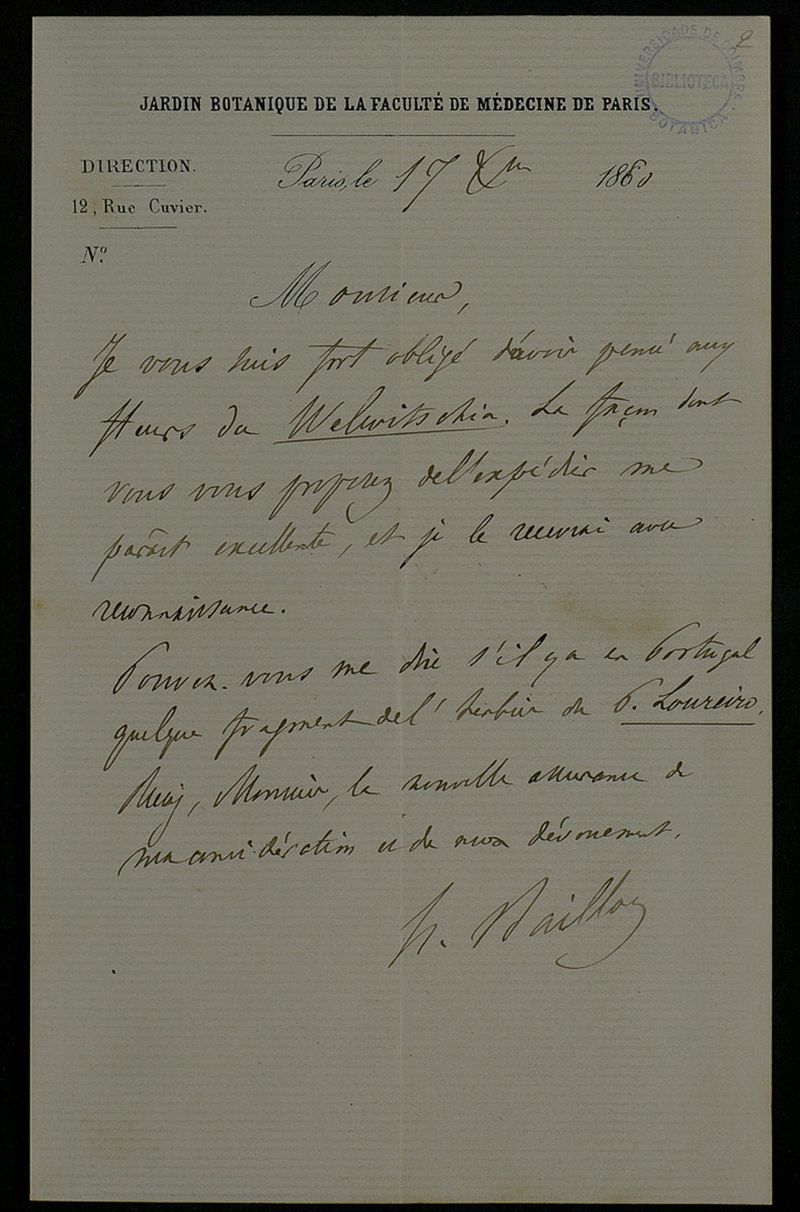 9
UNIVERSIDADE DE COIMBRA
BIBLIOTECA
BOTANICA
JARDIN BOTANIQUE DE LA FACULTÉ DE MÉDECINE DE PARIS.
DIRECTION.
12, Rue Cuvier.
Nº
Paris, le 17 Xbre 1880
Monsieur,
Je vous suis fort obligé d'avoir pensé aux
fleurs du Welwitschia. La façon dont
vous vous proposez de l'expédier me
paraît excellente, et je le recevrai avec
reconnaissance.
Pouvez-vous me dire s'il y a en Portugal
quelque fragment de l'herbier de P. Loureiro.
Monsieur, la nouvelle assurance de
ma considération et de mon dévouement.
H. Baillon